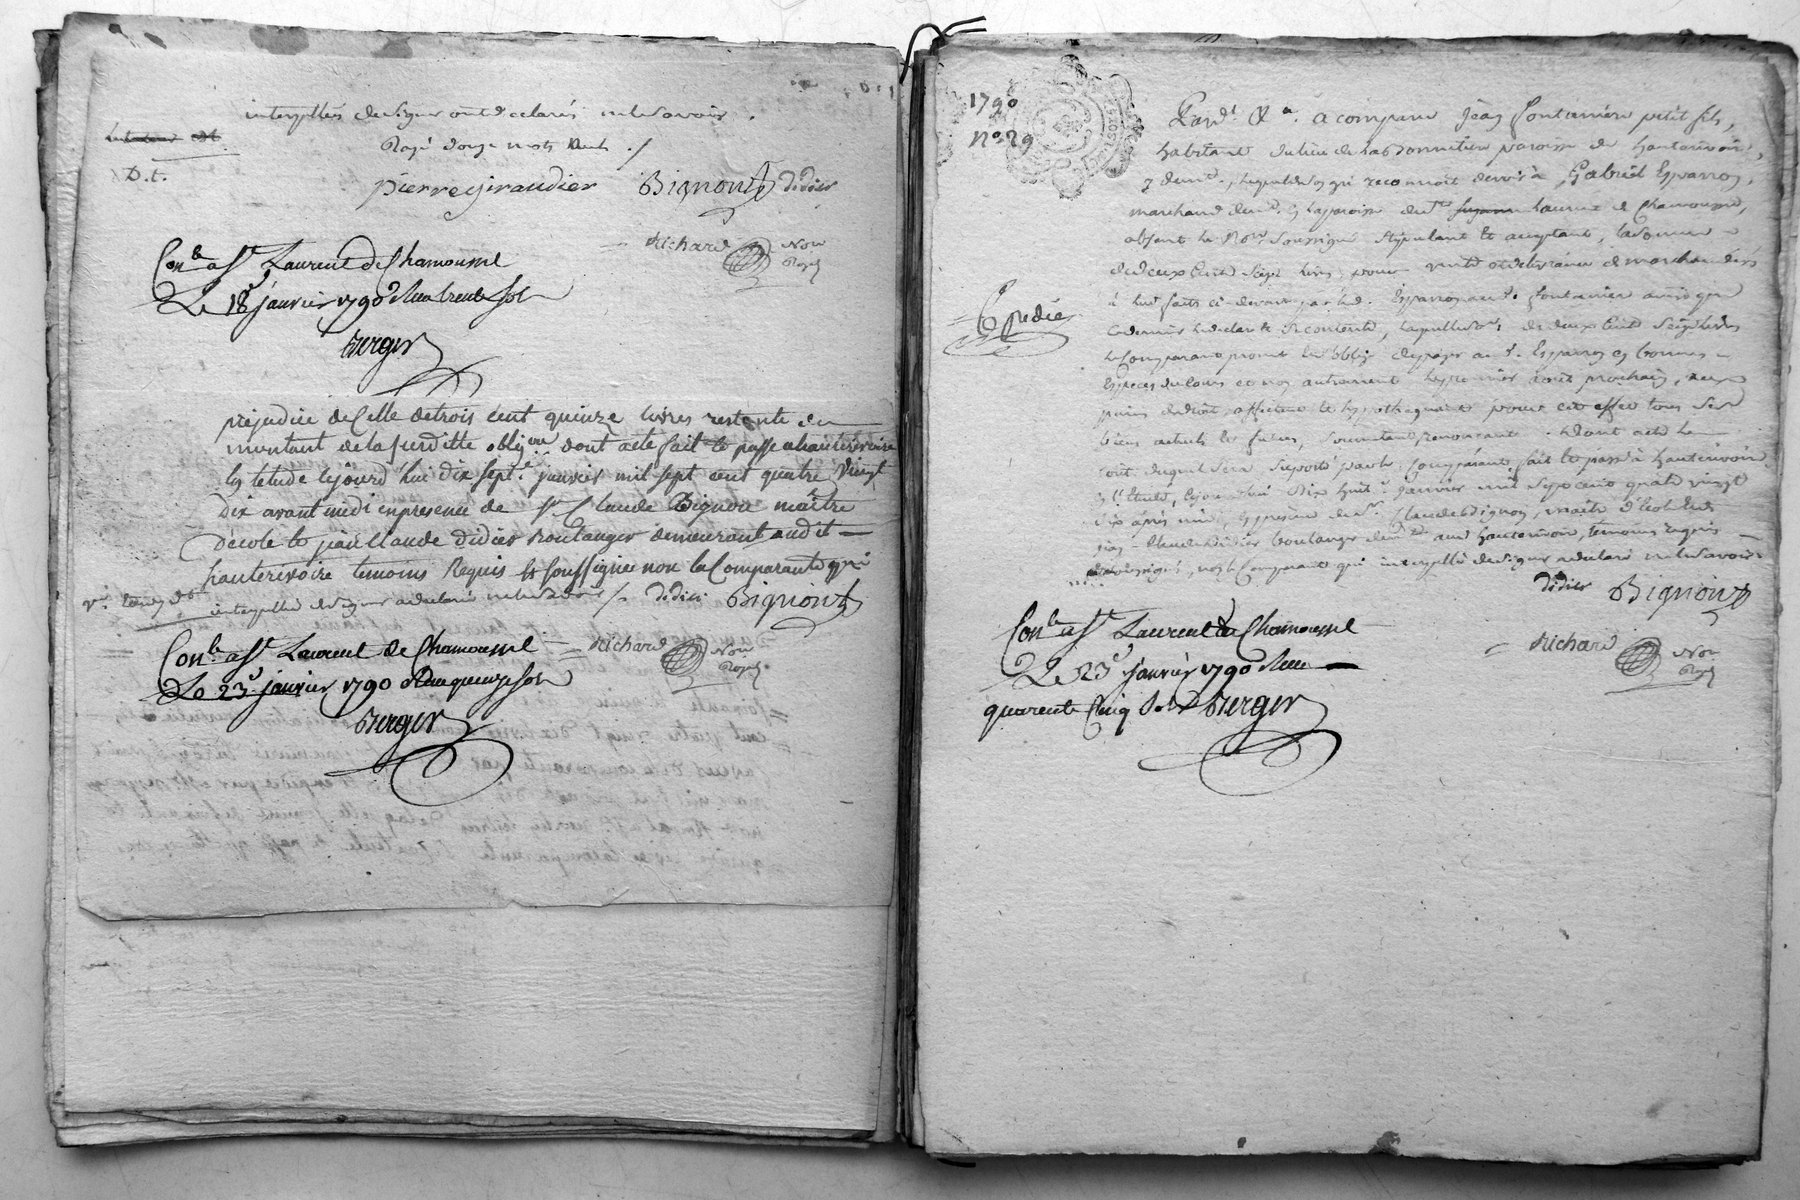 interpellés de signer ont declarés ne le savoir.
Rayé douze mots nuls ./
D.t.
pierre giraudier Bignon didier
Richard Nore Royal
Con.lé a St. Laurent de Chamousset
Le 18e janvier 1790 Reçu trente sols
Berger
prejudice de Celle de trois cent quinze livres restante du
montant de la susditte obligon. dont acte fait et passé a hauterivoire
en l'etude cejourd'hui dix sept.e janvier mil sept cent quatre vingt
dix avant midi en presence de Sr Claude Bignon maître
d'ecole et jean Claude didier Boulanger demeurant audit
hauterivoire temoins Requis et soussignés non la Comparante qui
interpellée de signer a declaré ne le savoir /. didier Bignon
Richard Nore Royal
Con.lé a St. Laurent de Chamousset
Le 23e janvier 1790 Reçu quinze sols
Berger
1790
No. 29
Pard.t &a. a comparu Jean fontanière petit fils,
habitant du lieu de paroisse de hauterivoire,
y demt. lequel de gré reconnoit devoir à Gabriel Esparron,
marchand demt. en la paroisse de St. Laurent de Chamousset,
absent le Nore. Soussigné stipulant et acceptant, la somme
de deux Cent Sept livres pour vente et délivrance de marchandises
à lui faits ci-devant par led. Esparron aud. fontanière ainsi que
ce dernier le déclare et s'en contente, laquelle so.e de deux Cent Sept livres
le Comparant promet et s'oblige de payer aud. Sr. Esparron en bonnes
Especes du cours et non autrement le premier août prochain, aux
peines de droit, affectant et hypothequant pour cet effet tous ses
biens actuels et futurs, soumettant renonçant. Dont acte le
cout duquel sera suporté par le Comparant, fait et passé à hauterivoire
en l'Etude, cejourd'hui dix huit.e Janvier mil sept cent quatre vingt
dix après midi, en presence de Sr. Claude Bignon, maitre d'école et de
jean Claude Didier boulanger demt. aud. hauterivoire, temoins requis
et soussignés, non le Comparant qui interpellé de signer a declaré ne le savoir.
Expedié
didier Bignon
Richard Nore Royal
Con.lé a St. Laurent de Chamousset
Le 23e janvier 1790 Reçu
quarente Cinq Sols Berger